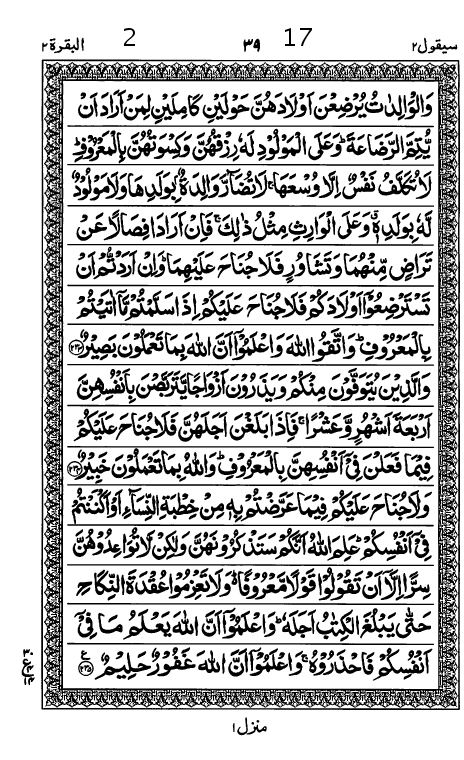 سيقول٢ ١٧ ٣٩ 2 البقرة٢
وَالْوَالِدٰتُ يُرْضِعْنَ اَوْلَادَهُنَّ حَوْلَيْنِ كَامِلَيْنِ لِمَنْ اَرَادَ اَنْ
يُّتِمَّ الرَّضَاعَةَ ؕ وَعَلَى الْمَوْلُوْدِ لَهٗ رِزْقُهُنَّ وَكِسْوَتُهُنَّ بِالْمَعْرُوْفِ ؕ
لَا تُكَلَّفُ نَفْسٌ اِلَّا وُسْعَهَا ۚ لَا تُضَآرَّ وَالِدَةٌۢ بِوَلَدِهَا وَلَا مَوْلُوْدٌ
لَّهٗ بِوَلَدِهٖ ۗ وَعَلَى الْوَارِثِ مِثْلُ ذٰلِكَ ۚ فَاِنْ اَرَادَا فِصَالًا عَنْ
تَرَاضٍ مِّنْهُمَا وَتَشَاوُرٍ فَلَا جُنَاحَ عَلَيْهِمَا ؕ وَاِنْ اَرَدْتُّمْ اَنْ
تَسْتَرْضِعُوْٓا اَوْلَادَكُمْ فَلَا جُنَاحَ عَلَيْكُمْ اِذَا سَلَّمْتُمْ مَّآ اٰتَيْتُمْ
بِالْمَعْرُوْفِ ؕ وَاتَّقُوا اللّٰهَ وَاعْلَمُوْٓا اَنَّ اللّٰهَ بِمَا تَعْمَلُوْنَ بَصِيْرٌ ﴿٢٣٣﴾
وَالَّذِيْنَ يُتَوَفَّوْنَ مِنْكُمْ وَيَذَرُوْنَ اَزْوَاجًا يَّتَرَبَّصْنَ بِاَنْفُسِهِنَّ
اَرْبَعَةَ اَشْهُرٍ وَّعَشْرًا ۚ فَاِذَا بَلَغْنَ اَجَلَهُنَّ فَلَا جُنَاحَ عَلَيْكُمْ
فِيْمَا فَعَلْنَ فِيْٓ اَنْفُسِهِنَّ بِالْمَعْرُوْفِ ؕ وَاللّٰهُ بِمَا تَعْمَلُوْنَ خَبِيْرٌ ﴿٢٣٤﴾
وَلَا جُنَاحَ عَلَيْكُمْ فِيْمَا عَرَّضْتُمْ بِهٖ مِنْ خِطْبَةِ النِّسَآءِ اَوْ اَكْنَنْتُمْ
فِيْٓ اَنْفُسِكُمْ ؕ عَلِمَ اللّٰهُ اَنَّكُمْ سَتَذْكُرُوْنَهُنَّ وَلٰكِنْ لَّا تُوَاعِدُوْهُنَّ
سِرًّا اِلَّآ اَنْ تَقُوْلُوْا قَوْلًا مَّعْرُوْفًا ؕ وَلَا تَعْزِمُوْا عُقْدَةَ النِّكَاحِ
حَتّٰى يَبْلُغَ الْكِتٰبُ اَجَلَهٗ ؕ وَاعْلَمُوْٓا اَنَّ اللّٰهَ يَعْلَمُ مَا فِيْٓ
اَنْفُسِكُمْ فَاحْذَرُوْهُ ۚ وَاعْلَمُوْٓا اَنَّ اللّٰهَ غَفُوْرٌ حَلِيْمٌ ﴿٢٣٥﴾
منزل١